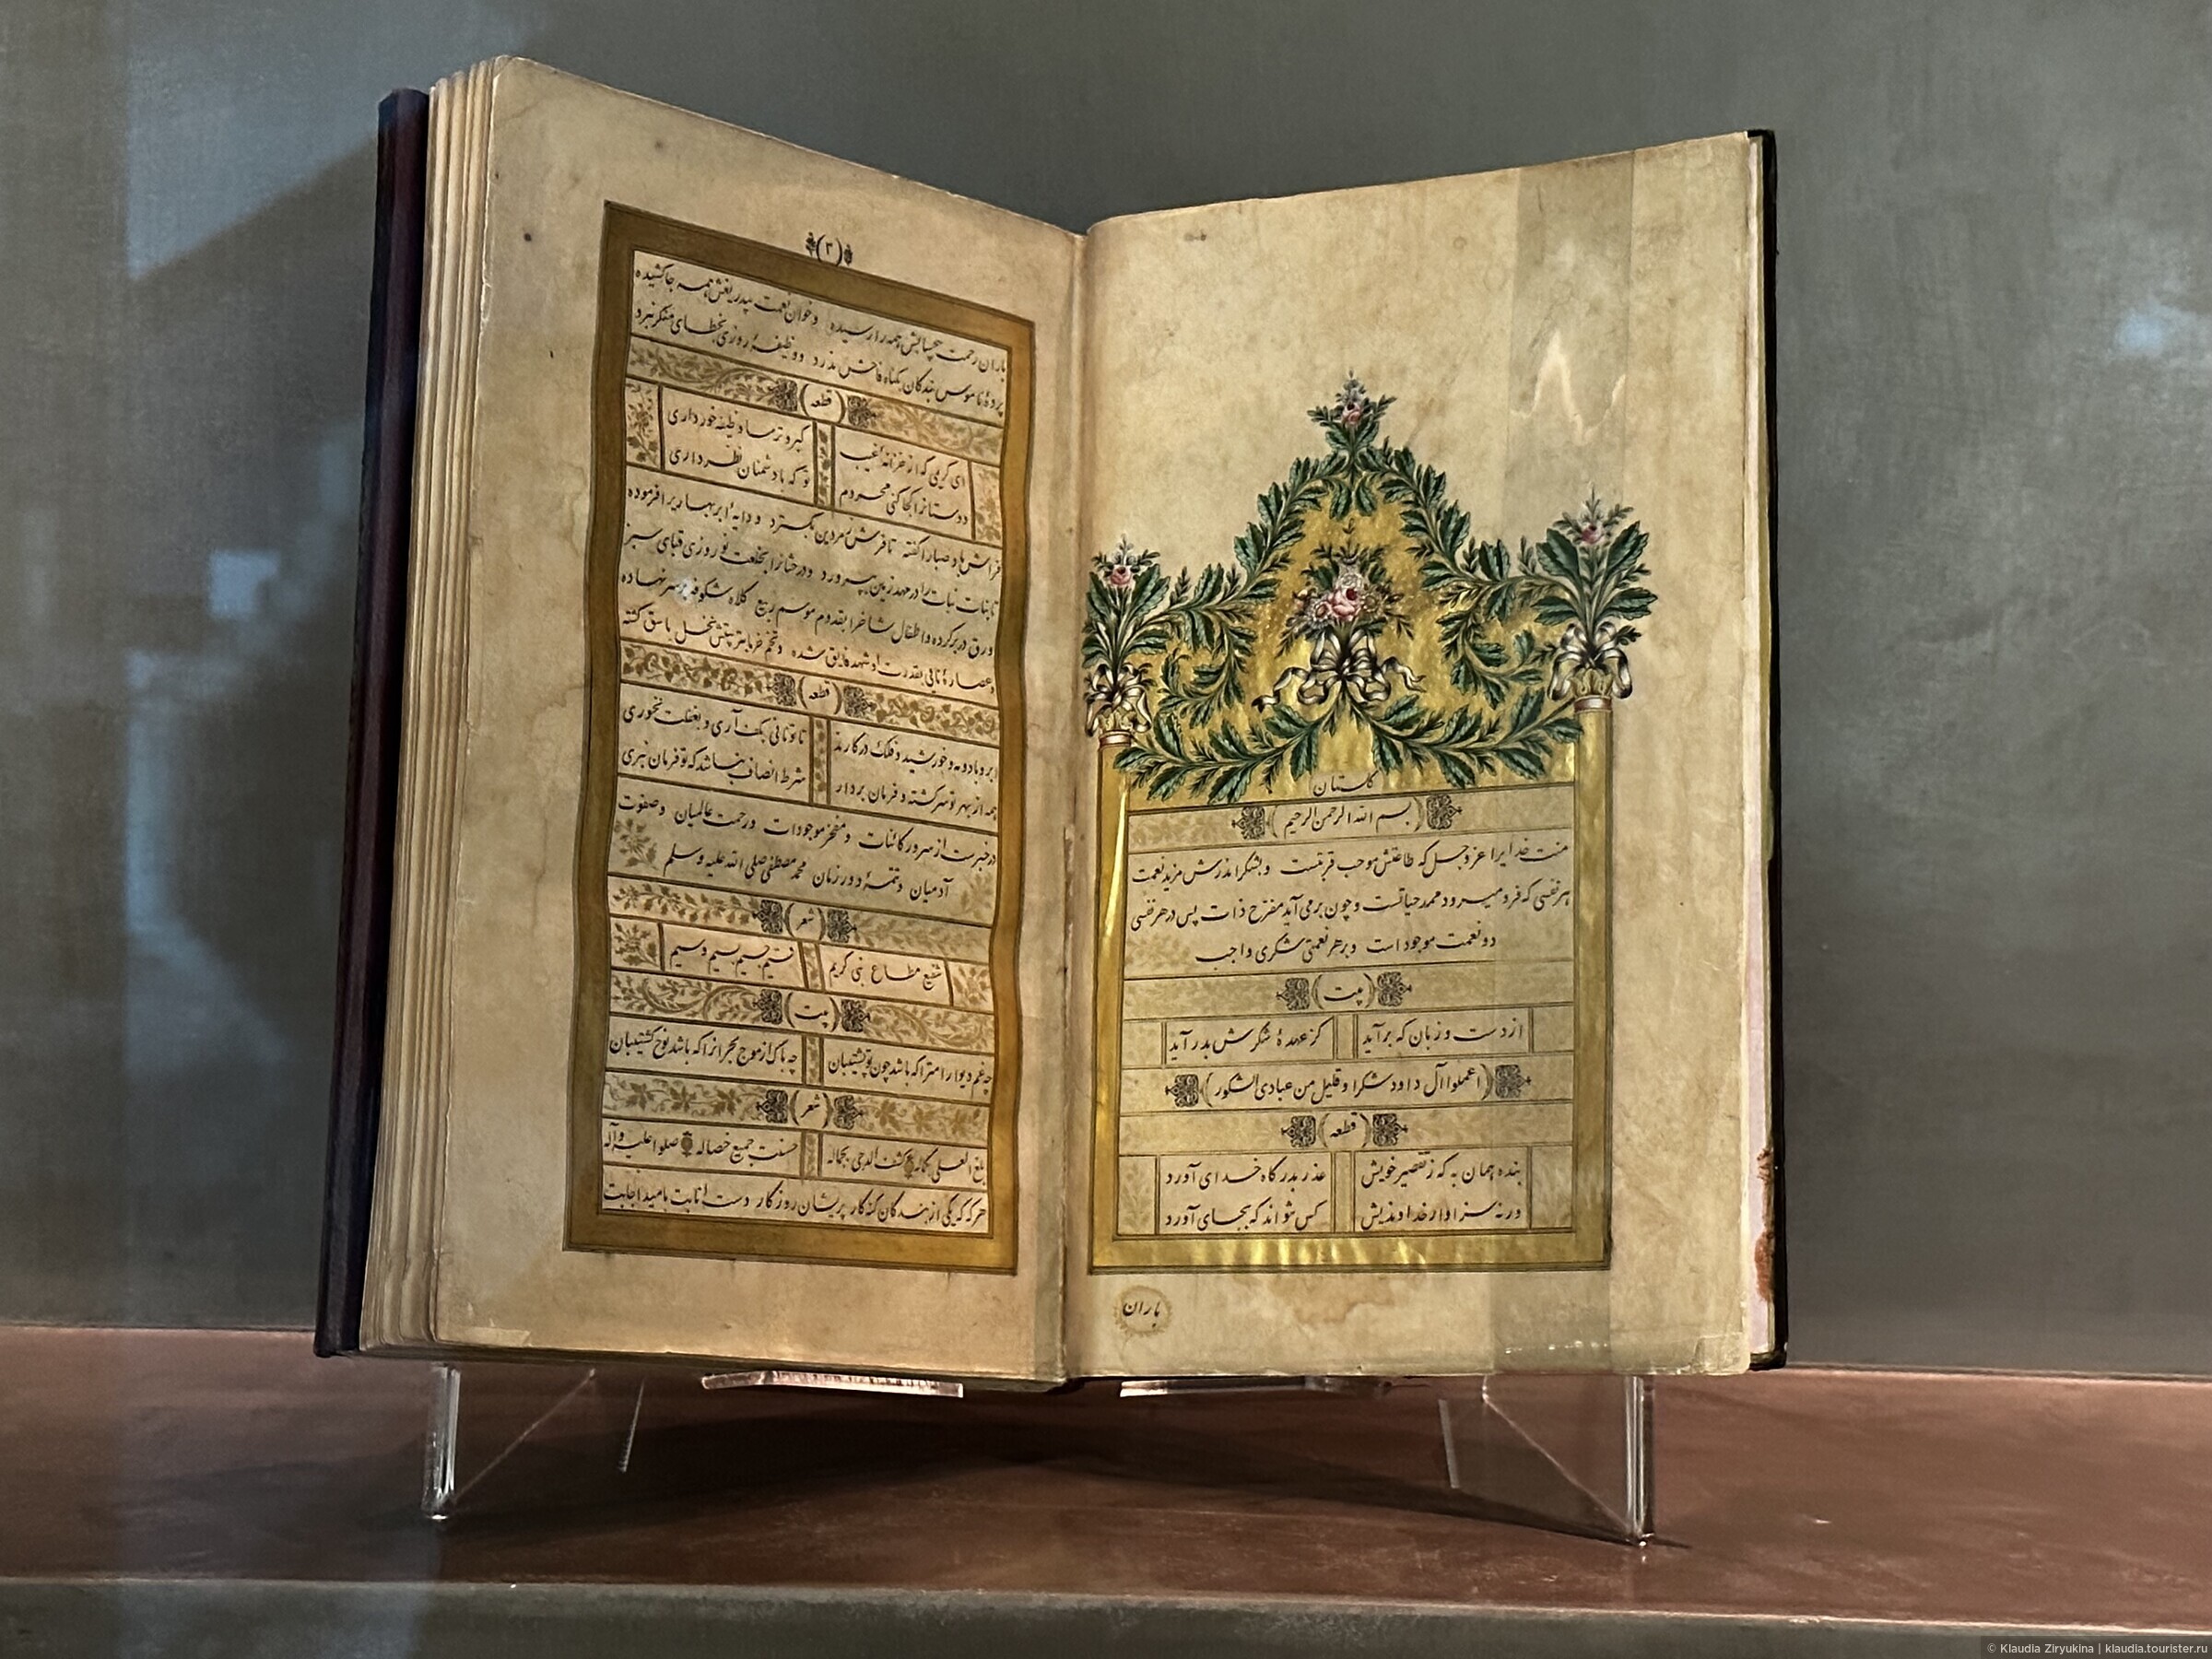 گلستان
بسم الله الرحمن الرحيم
منت خدایرا عز و جل که طاعتش موجب قربتست و بشکر اندرش مزید نعمت
هر نفسی که فرو میرود ممد حیاتست و چون بر می آید مفرّح ذات پس در هر نفسی
دو نعمت موجود است و بر هر نعمتی شکری واجب
بیت
از دست و زبان که برآید کز عهدۀ شکرش بدر آید
اعملوا آل داود شکرا و قلیل من عبادی الشکور
قطعه
بنده همان به که ز تقصیر خویش عذر بدرگاه خدای آورد
ورنه سزاوار خداوندیش کس نتواند که بجای آورد
باران
(۳)
باران رحمت بیحسابش همه را رسیده و خوان نعمت بیدریغش همه جا کشیده
پردۀ ناموس بندگان بگناه فاحش ندرد و وظیفۀ روزی بخطای منکر نبرد
قطعه
ای کریمی که از خزانۀ غیب گبر و ترسا وظیفه خور داری
دوستانرا کجا کنی محروم تو که با دشمنان نظر داری
فراش باد صبا را گفته تا فرش زمردین بگسترد و دایۀ ابر بهاریرا فرموده
تا بنات نبات را در مهد زمین بپرورد و درختانرا بخلعت نوروزی قبای سبز
ورق در بر کرده و اطفال شاخرا بقدوم موسم ربیع کلاه شکوفه بر سر نهاده
و عصارۀ نایی بقدرت او شهد فایق شده و تخم خرما بتربیتش نخل باسق گشته
قطعه
ابر و باد و مه و خورشید و فلک در کارند تا تو نانی بکف آری و بغفلت نخوری
همه از بهر تو سرگشته و فرمان بردار شرط انصاف نباشد که تو فرمان نبری
در خبرست از سرور کائنات و مفخر موجودات و رحمت عالمیان و صفوت
آدمیان و تتمۀ دور زمان محمد مصطفی صلی الله علیه و سلم
شعر
شفیع مطاع نبی کریم قسیم جسیم بسیم وسیم
بیت
چه غم دیوار امترا که باشد چون تو پشتیبان چه باک از موج بحر انرا که باشد نوح کشتیبان
شعر
بلغ العلی بکماله کشف الدجی بجماله حسنت جمیع خصاله صلوا علیه و آله
هر گه که یکی از بندگان گنه کار پریشان روزگار دست انابت بامید اجابت
© Klaudia Ziryukina | klaudia.tourister.ru